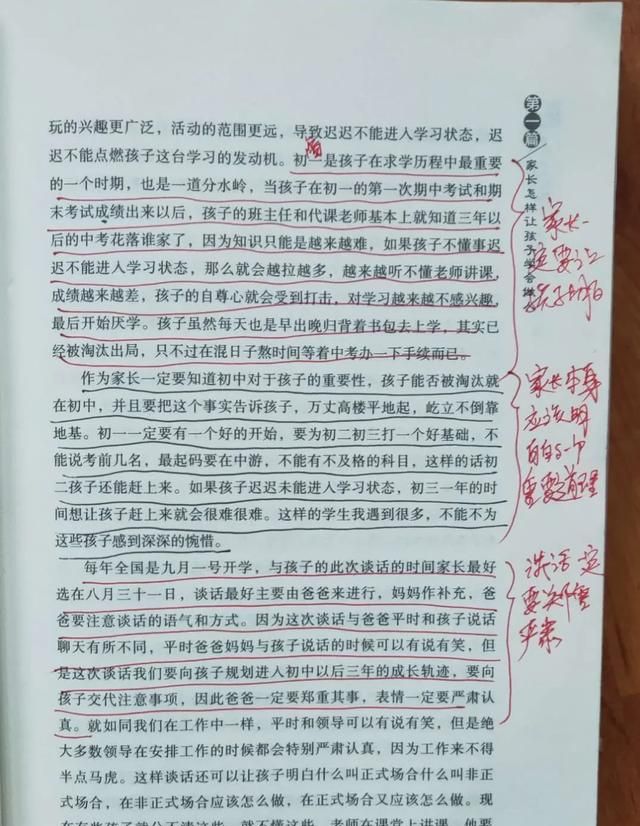 玩的兴趣更广泛，活动的范围更远，导致迟迟不能进入学习状态，迟
迟不能点燃孩子这台学习的发动机。初一是孩子在求学历程中最重要
的一个时期，也是一道分水岭，当孩子在初一的第一次期中考试和期
末考试成绩出来以后，孩子的班主任和代课老师基本上就知道三年以
后的中考花落谁家了，因为知识只能是越来越难，如果孩子不懂事迟
迟不能进入学习状态，那么就会越拉越多，越来越听不懂老师讲课，
成绩越来越差，孩子的自尊心就会受到打击，对学习越来越不感兴趣，
最后开始厌学。孩子虽然每天也是早出晚归背着书包去上学，其实已
经被淘汰出局，只不过在混日子熬时间等着中考办一下手续而已。
作为家长一定要知道初中对于孩子的重要性，孩子能否被淘汰就
在初中，并且要把这个事实告诉孩子，万丈高楼平地起，屹立不倒靠
地基。初一一定要有一个好的开始，要为初二初三打一个好基础，不
能说考前几名，最起码要在中游，不能有不及格的科目，这样的话初
二孩子还能赶上来。如果孩子迟迟未能进入学习状态，初三一年的时
间想让孩子赶上来就会很难很难。这样的学生我遇到很多，不能不为
这些孩子感到深深的惋惜。
每年全国是九月一号开学，与孩子的此次谈话的时间家长最好
选在八月三十一日，谈话最好主要由爸爸来进行，妈妈作补充，爸
爸要注意谈话的语气和方式。因为这次谈话与爸爸平时和孩子说话
聊天有所不同，平时爸爸妈妈与孩子说话的时候可以有说有笑，但
是这次谈话我们要向孩子规划进入初中以后三年的成长轨迹，要向
孩子交代注意事项，因此爸爸一定要郑重其事，表情一定要严肃认
真。就如同我们在工作中一样，平时和领导可以有说有笑，但是绝
大多数领导在安排工作的时候都会特别严肃认真，因为工作来不得
半点马虎。这样谈话还可以让孩子明白什么叫正式场合什么叫非正
式场合，在非正式场合应该怎么做，在正式场合又应该怎么做。现
在有些孩子就分不清这些，就不懂这些，老师在课堂上讲课，他要
第一篇
家长怎样让孩子学会做
家长一
定要让
孩子明白
家长本身
应该明
白这个
重要道理
谈话一定
要郑重
严肃